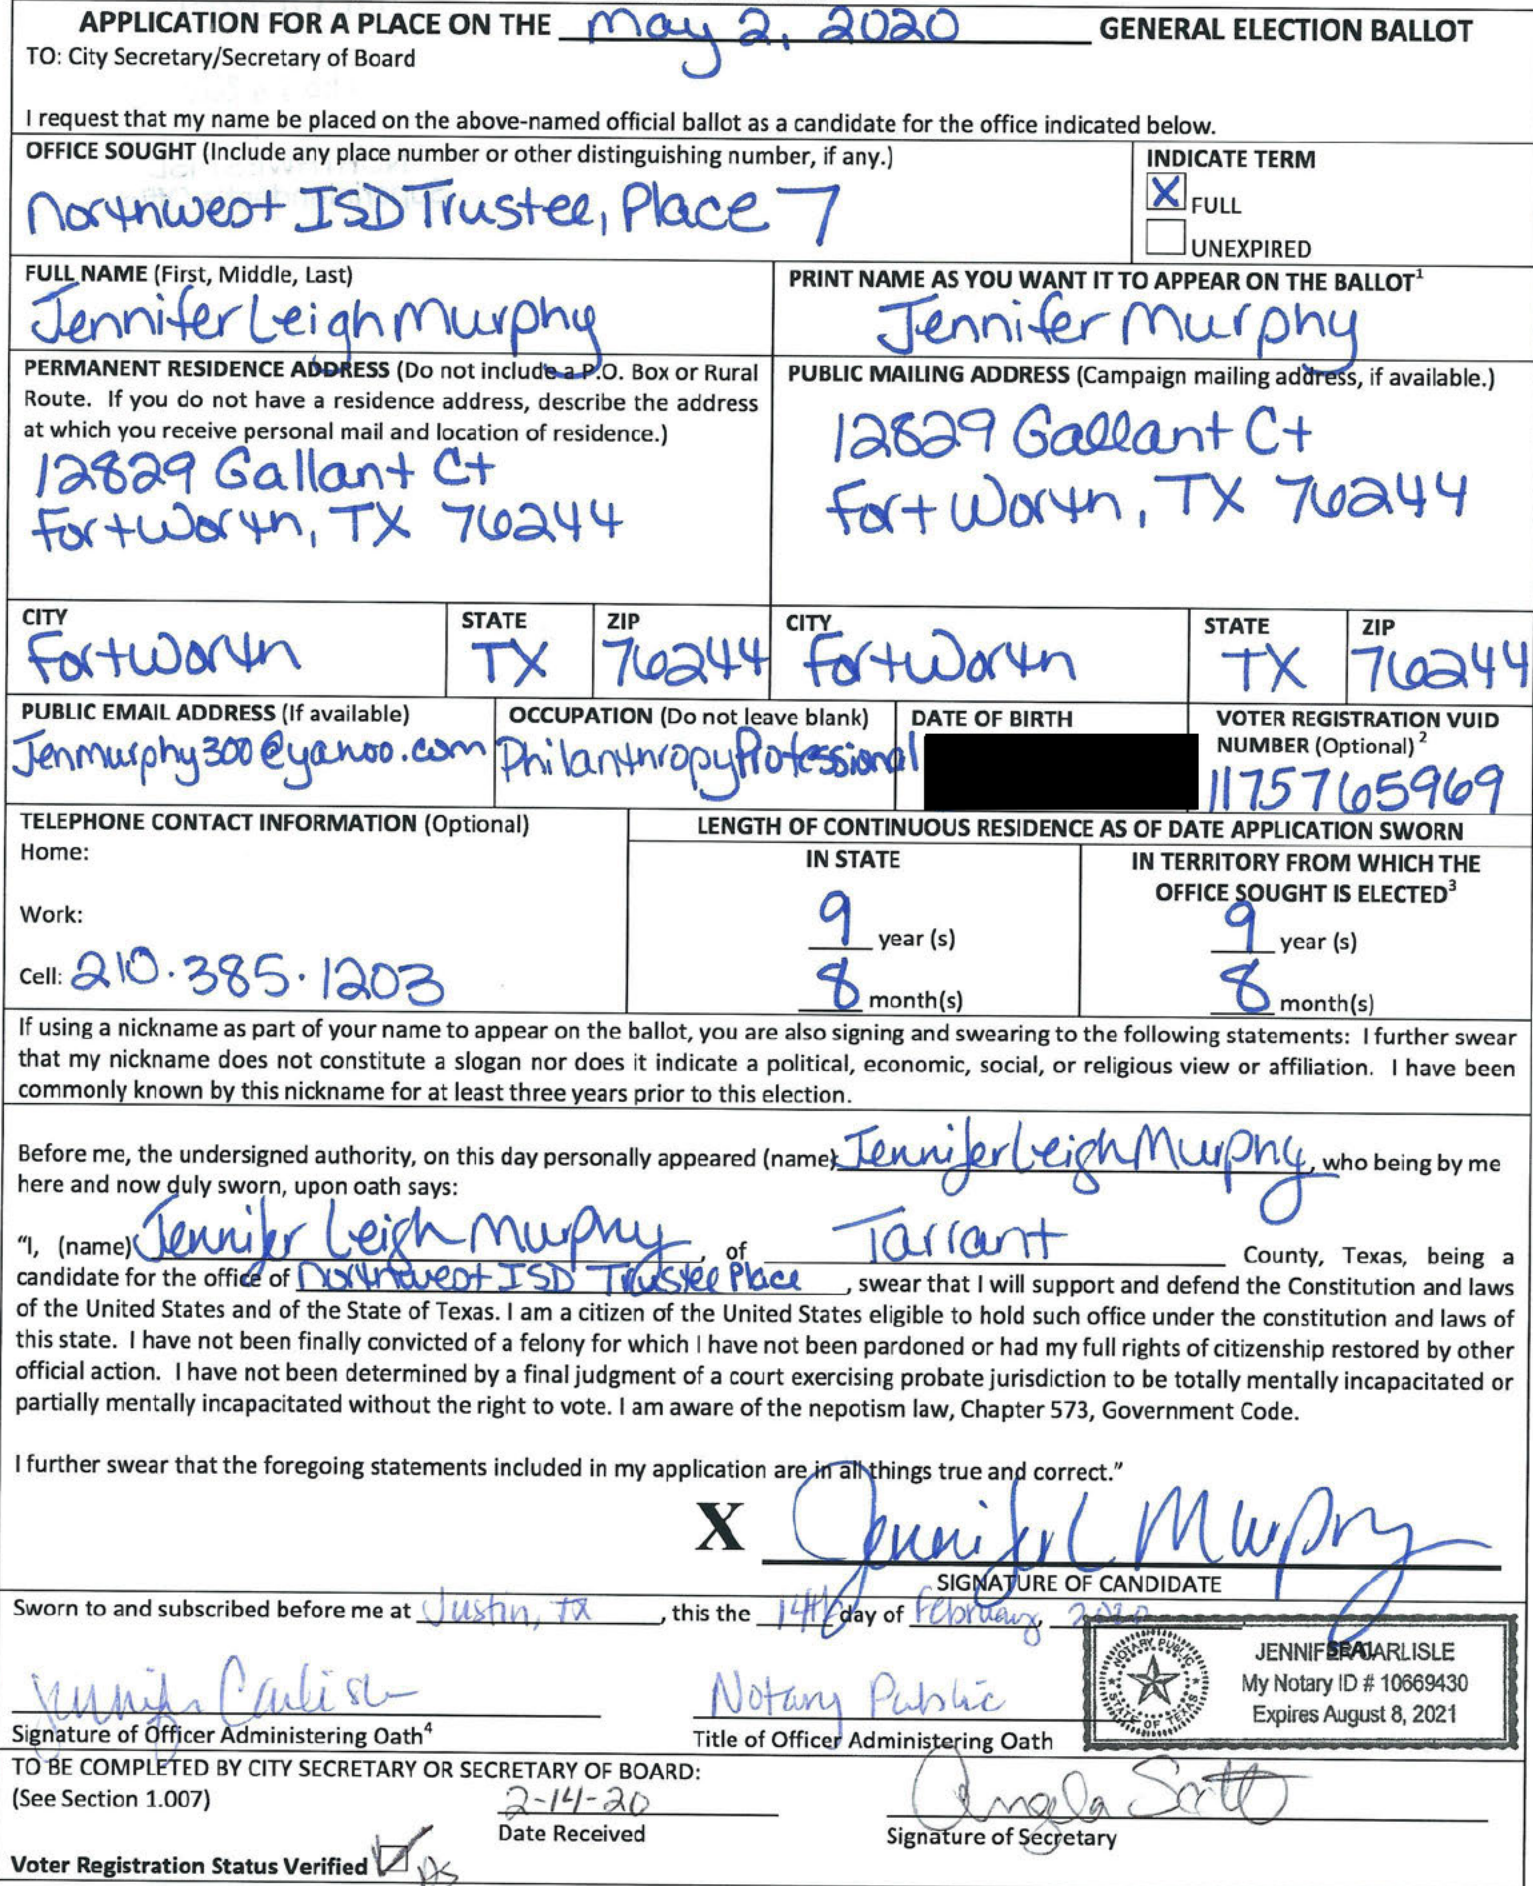 APPLICATION FOR A PLACE ON THE May 2, 2020 GENERAL ELECTION BALLOT
TO: City Secretary/Secretary of Board
I request that my name be placed on the above-named official ballot as a candidate for the office indicated below.
OFFICE SOUGHT (Include any place number or other distinguishing number, if any.)
Northwest ISD Trustee, Place 7
INDICATE TERM
X FULL
UNEXPIRED
FULL NAME (First, Middle, Last)
Jennifer Leigh Murphy
PRINT NAME AS YOU WANT IT TO APPEAR ON THE BALLOT1
Jennifer Murphy
PERMANENT RESIDENCE ADDRESS (Do not include a P.O. Box or Rural
Route. If you do not have a residence address, describe the address
at which you receive personal mail and location of residence.)
12829 Gallant Ct
Fort Worth, TX 76244
PUBLIC MAILING ADDRESS (Campaign mailing address, if available.)
12829 Gallant Ct
Fort Worth, TX 76244
CITY
Fort Worth
STATE
TX
ZIP
76244
CITY
Fort Worth
STATE
TX
ZIP
76244
PUBLIC EMAIL ADDRESS (If available)
Jenmurphy300@yahoo.com
OCCUPATION (Do not leave blank)
Philanthropy Professional
DATE OF BIRTH
VOTER REGISTRATION VUID
NUMBER (Optional)2
1175765969
TELEPHONE CONTACT INFORMATION (Optional)
Home:
Work:
Cell: 210.385.1203
LENGTH OF CONTINUOUS RESIDENCE AS OF DATE APPLICATION SWORN
IN STATE
9 year (s)
8 month(s)
IN TERRITORY FROM WHICH THE
OFFICE SOUGHT IS ELECTED3
9 year (s)
8 month(s)
If using a nickname as part of your name to appear on the ballot, you are also signing and swearing to the following statements: I further swear
that my nickname does not constitute a slogan nor does it indicate a political, economic, social, or religious view or affiliation. I have been
commonly known by this nickname for at least three years prior to this election.
Before me, the undersigned authority, on this day personally appeared (name) Jennifer Leigh Murphy, who being by me
here and now duly sworn, upon oath says:
"I, (name) Jennifer Leigh Murphy, of Tarrant County, Texas, being a
candidate for the office of Northwest ISD Trustee Place, swear that I will support and defend the Constitution and laws
of the United States and of the State of Texas. I am a citizen of the United States eligible to hold such office under the constitution and laws of
this state. I have not been finally convicted of a felony for which I have not been pardoned or had my full rights of citizenship restored by other
official action. I have not been determined by a final judgment of a court exercising probate jurisdiction to be totally mentally incapacitated or
partially mentally incapacitated without the right to vote. I am aware of the nepotism law, Chapter 573, Government Code.
I further swear that the foregoing statements included in my application are in all things true and correct."
X Jennifer L Murphy
SIGNATURE OF CANDIDATE
Sworn to and subscribed before me at Justin, TX, this the 14th day of February, 2020
Jennifer Carlisle
Signature of Officer Administering Oath4
Notary Public
Title of Officer Administering Oath
NOTARY PUBLIC
STATE OF TEXAS
My Notary ID # 10669430
Expires August 8, 2021
TO BE COMPLETED BY CITY SECRETARY OR SECRETARY OF BOARD:
(See Section 1.007)
2-14-20
Date Received
Angela Scott
Signature of Secretary
Voter Registration Status Verified AS